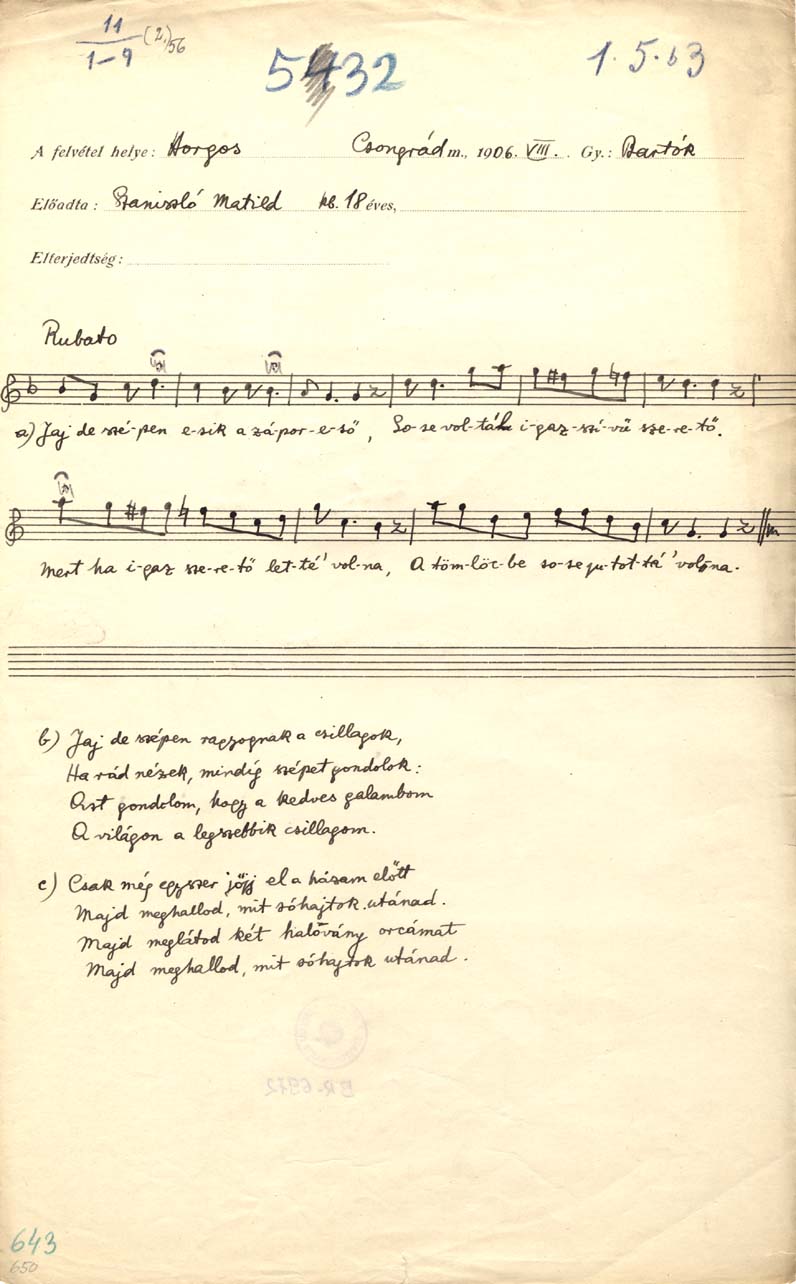 11
1–9 (2.)56
5432
1.5.63
A felvétel helye: Horgos Csongrád m., 1906. VIII. Gy.: Bartók
Előadta: Staniszló Matild kb. 18 éves,
Elterjedtség:
Rubato
a) Jaj de szé-pen e-sik a zá-por-e-ső, So-se vol-tál i-gaz-szí-vü sze-re-tő.
Mert ha i-gaz sze-re-tő let-té' vol-na, A töm-löc-be so-se ju-tot-tá' volna.
b) Jaj de szépen ragyognak a csillagok,
Ha rád nézek, mindig szépet gondolok:
Ast gondolom, hogy a kedves galambom
A világon a legszebbik csillagom.
c) Csak még egyszer jöjj el a házam előtt
Majd meghallod, mit sóhajtok utánad.
Majd meglátod két halovány orcámat
Majd meghallod, mit sóhajtok utánad.
BR-6972
643
650